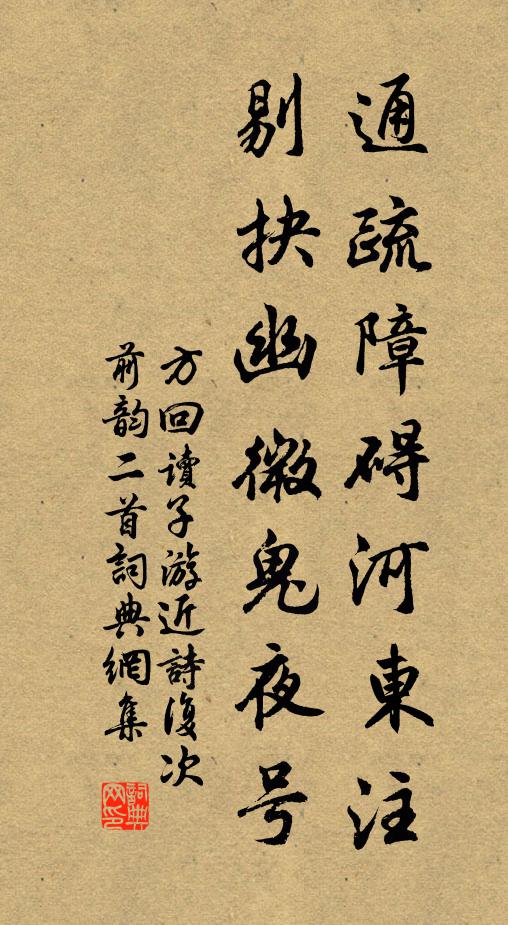 通疏障碍河東注
剔抉幽微鬼夜号
方回讀子游近詩復次
前韵二首詞典網集
詞典网印